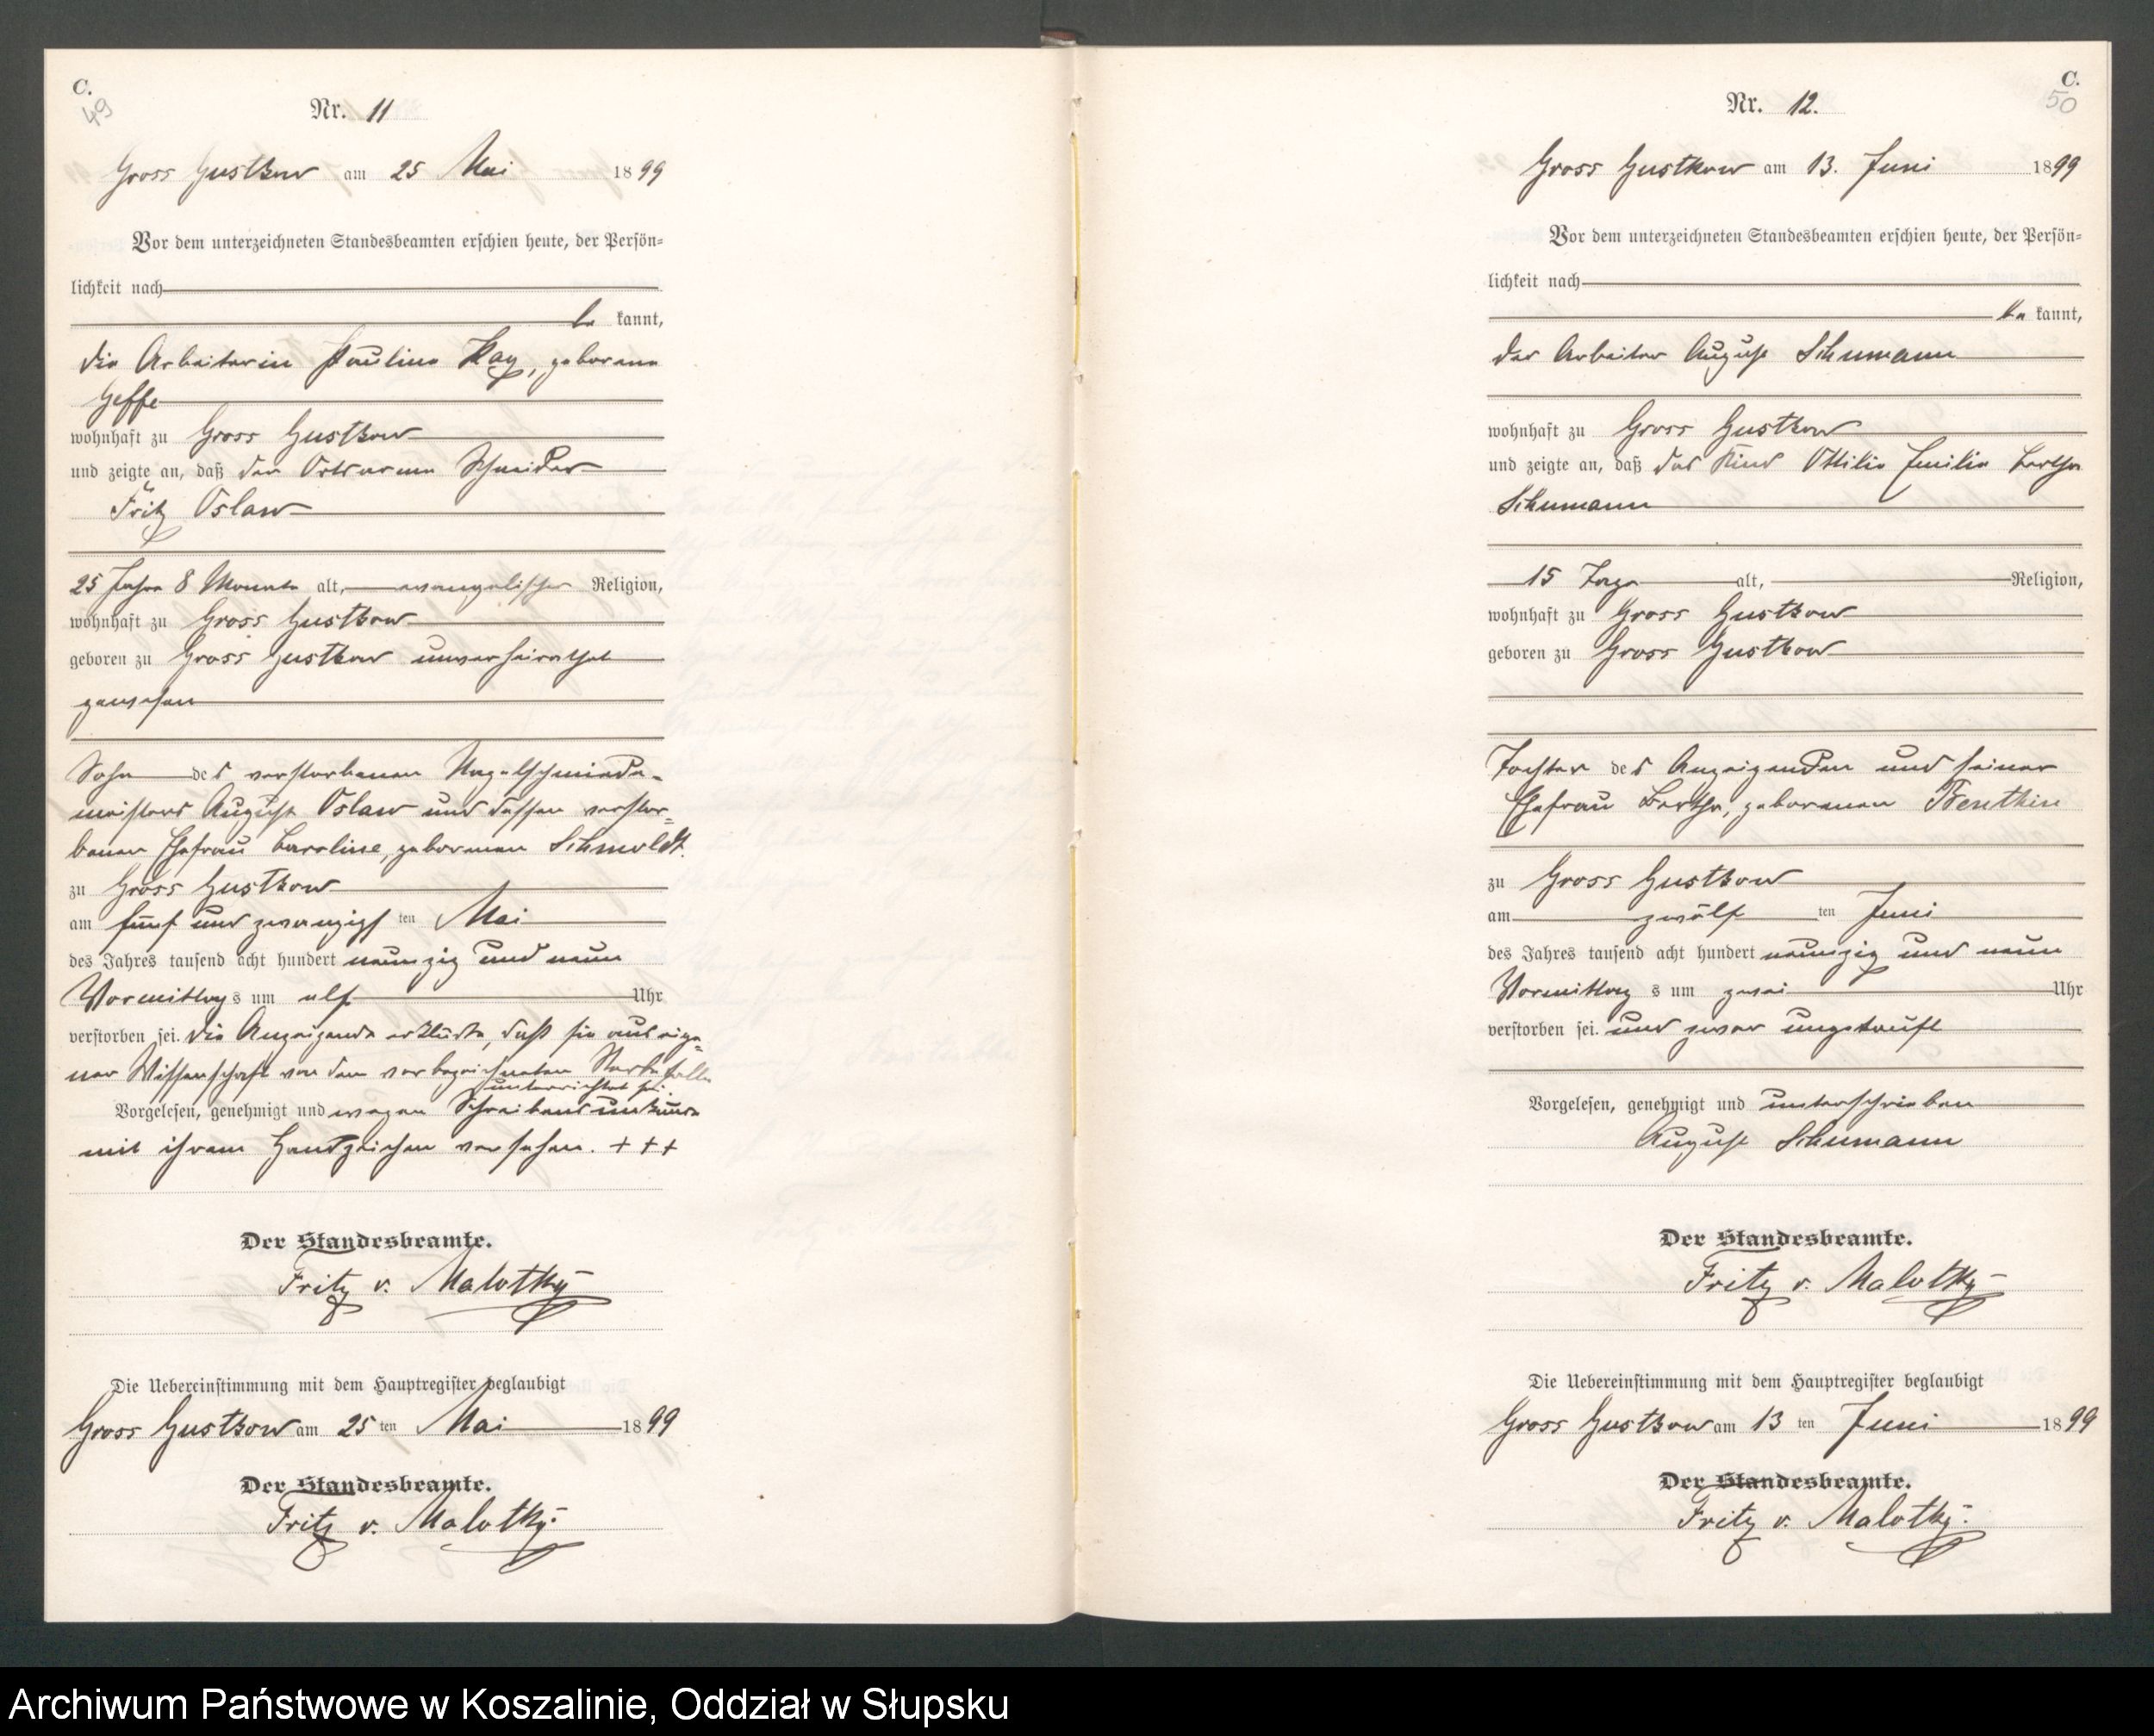 C.
49
Nr. 11
Gross Gustkow am 25 Mai 1899
Vor dem unterzeichneten Standesbeamten erschien heute, der Persön-
lichkeit nach
be kannt,
die Arbeiterin Pauline Kay, geborene
Geffe
wohnhaft zu Gross Gustkow
und zeigte an, daß der Ortsarme Schneider
Fritz Oslaw
25 Jahre 8 Monate alt, evangelischer Religion,
wohnhaft zu Gross Gustkow
geboren zu Gross Gustkow unverheirathet
gewesen
Sohn des verstorbenen Nagelschmiede-
meisters August Oslaw und dessen verstor-
benen Ehefrau Caroline, geborenen Schmoldt.
zu Gross Gustkow
am fünf und zwanzigs ten Mai
des Jahres tausend acht hundert neunzig und neun
Vormittags um elf Uhr
verstorben sei. Die Anzeigende erklärte, daß sie aus eige-
ner Wissenschaft von dem vorbezeichneten Sterbefalle
unterrichtet sei.
Vorgelesen, genehmigt und wegen Schreibensunkunde
mit ihrem Handzeichen versehen. + + +
Der Standesbeamte.
Fritz v. Malotky
Die Uebereinstimmung mit dem Hauptregister beglaubigt
Gross Gustkow am 25 ten Mai 1899
Der Standesbeamte.
Fritz v. Malotky.
C.
50
Nr. 12.
Gross Gustkow am 13. Juni 1899
Vor dem unterzeichneten Standesbeamten erschien heute, der Persön-
lichkeit nach
be kannt,
der Arbeiter August Schumann
wohnhaft zu Gross Gustkow
und zeigte an, daß das Kind Ottilie Emilie Bertha
Schumann
15 Tage alt, Religion,
wohnhaft zu Gross Gustkow
geboren zu Gross Gustkow
Tochter des Anzeigenden und seiner
Ehefrau Bertha, geborenen Trenthin
zu Gross Gustkow
am zwölf ten Juni
des Jahres tausend acht hundert neunzig und neun
Vormittag s um zwei Uhr
verstorben sei. und zwar ungetauft
Vorgelesen, genehmigt und unterschrieben
August Schumann
Der Standesbeamte.
Fritz v. Malotky
Die Uebereinstimmung mit dem Hauptregister beglaubigt
Gross Gustkow am 13 ten Juni 1899
Der Standesbeamte.
Fritz v. Malotky.
Archiwum Państwowe w Koszalinie, Oddział w Słupsku